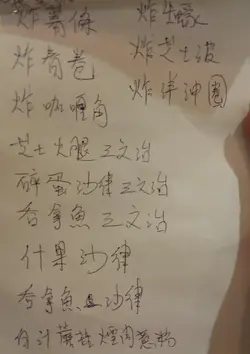 炸薯條 炸生蠔
炸春卷 炸芝士波
炸咖喱角 炸半沖
芝士火腿三文治
碎蛋沙律三文治
吞拿魚三文治
什果沙律
吞拿魚沙律
白汁蘑菇煙肉意粉